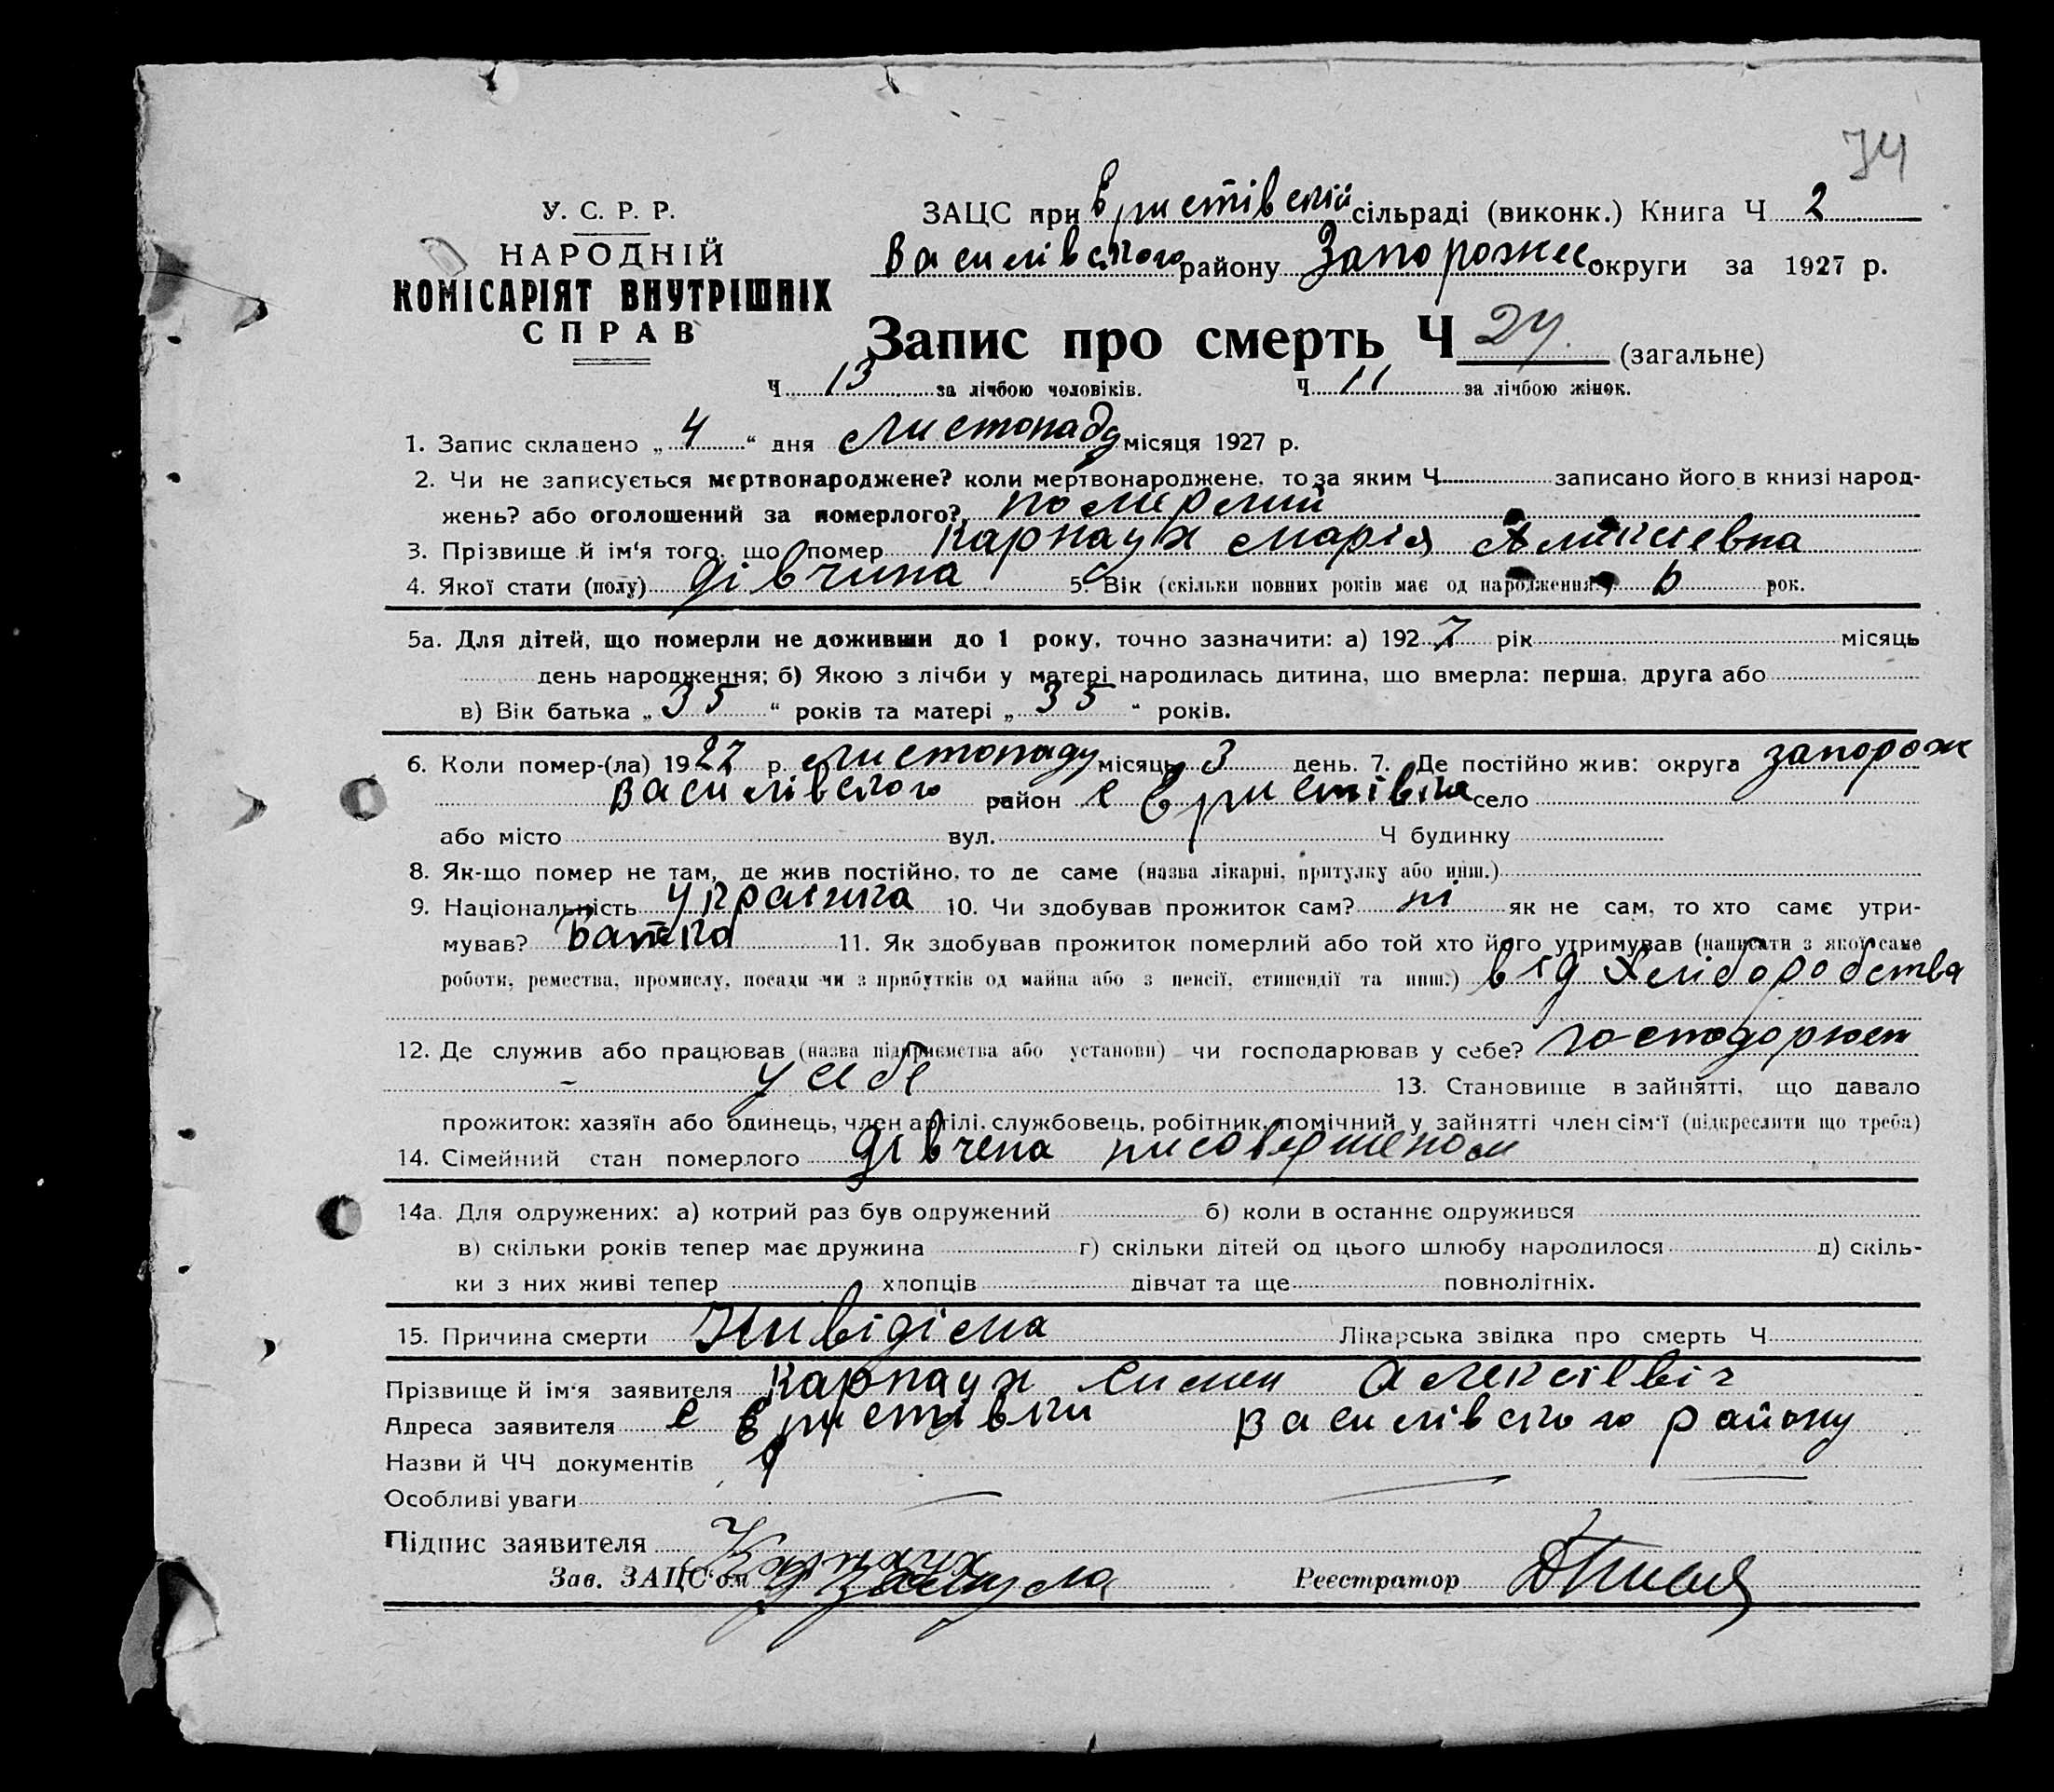 74
У. С. Р. Р.
НАРОДНІЙ
КОМІСАРІЯТ ВНУТРІШНІХ
СПРАВ
ЗАЦС при Єристівскій сільраді (виконк.) Книга Ч 2
Василівского району Запорожес округи за 1927 р.
Запис про смерть Ч 24. (загальне)
Ч 13 за лічбою чоловіків. Ч 11 за лічбою жінок.
1. Запис складено „ 4 “ дня Листопаду місяця 1927 р.
2. Чи не записується мертвонароджене? коли мертвонароджене, то за яким Ч записано його в книзі народ-
жень? або оголошений за померлого? померлий
3. Прізвище й ім'я того, що помер Карнаух Марія
4. Якої стати (полу) дівчина 5. Вік (скільки повних років має од народження) рок.
5а. Для дітей, що померли не доживши до 1 року, точно зазначити: а) 1927 рік місяць
день народження; б) Якою з лічби у матері народилась дитина, що вмерла: перша, друга або
в) Вік батька „ 35 “ років та матері „ 35 “ років.
6. Коли помер-(ла) 1927 р. листопаду місяць 3 день. 7. Де постійно жив: округа запорож
Василівского район с Єристівка село
або місто вул. Ч будинку
8. Як-що помер не там, де жив постійно, то де саме (назва лікарні, притулку або инш.)
9. Національність Українка 10. Чи здобував прожиток сам? ні як не сам, то хто саме утри-
мував? батько 11. Як здобував прожиток померлий або той хто його утримував (написати з якої саме
роботи, ремества, промислу, посади чи з прибутків од майна або з пенсії, стипендії та инш.) від Хліборобства
12. Де служив або працював (назва підприємства або установи) чи господарював у себе? господорюєт
у себе 13. Становище в зайнятті, що давало
прожиток: хазяїн або одинець, член артілі, службовець, робітник, помічний у зайнятті член сім'ї (підкреслити що треба)
14. Сімейний стан померлого дівчена
14а. Для одружених: а) котрий раз був одружений б) коли в останнє одружився
в) скільки років тепер має дружина г) скільки дітей од цього шлюбу народилося д) скіль-
ки з них живі тепер хлопців дівчат та ще повнолітніх.
15. Причина смерти Нивідіма Лікарська звідка про смерть Ч
Прізвище й ім'я заявителя Карнаух Симен Алексієвіч
Адреса заявителя с Єристівки Василівского району
Назви й ЧЧ документів
Особливі уваги
Підпис заявителя Карнаух
Зав. ЗАЦС'ом
Реєстратор